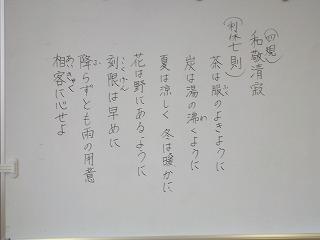 （四規）
和敬清寂
（利休七則）
茶は服のよきように
炭は湯の沸くように
夏は涼しく 冬は暖かに
花は野にあるように
刻限は早めに
降らずとも雨の用意
相客に心せよ